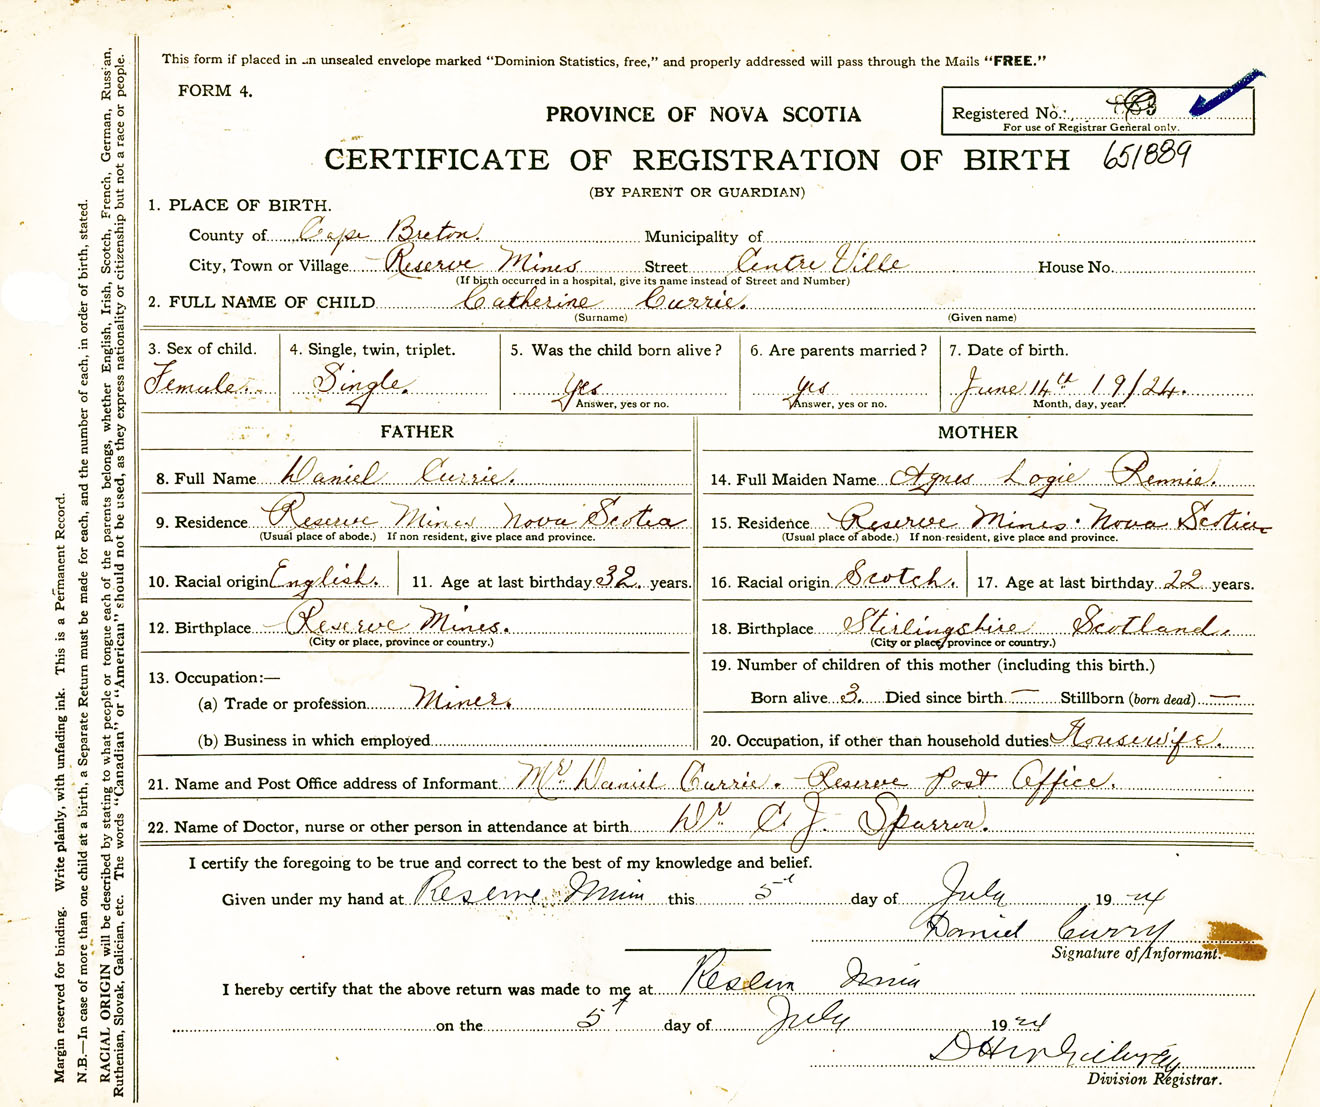 This form if placed in an unsealed envelope marked "Dominion Statistics, free," and properly addressed will pass through the Mails "FREE."
FORM 4.
PROVINCE OF NOVA SCOTIA
Registered No.:
For use of Registrar General only.
CERTIFICATE OF REGISTRATION OF BIRTH 651889
(BY PARENT OR GUARDIAN)
1. PLACE OF BIRTH.
County of Cape Breton. Municipality of
City, Town or Village Reserve Mines Street Centre Ville House No.
(If birth occurred in a hospital, give its name instead of Street and Number)
2. FULL NAME OF CHILD Catherine Currie.
(Surname) (Given name)
3. Sex of child. 4. Single, twin, triplet. 5. Was the child born alive? 6. Are parents married? 7. Date of birth.
Female. Single. Yes yes June 14th 19/24.
Answer, yes or no. Answer, yes or no. Month, day, year.
FATHER MOTHER
8. Full Name Daniel Currie. 14. Full Maiden Name Agnes Logie Rennie.
9. Residence Reserve Mines Nova Scotia 15. Residence Reserve Mines. Nova Scotia
(Usual place of abode.) If non resident, give place and province. (Usual place of abode.) If non-resident, give place and province.
10. Racial origin English. 11. Age at last birthday 32. years. 16. Racial origin Scotch. 17. Age at last birthday 22 years.
12. Birthplace Reserve Mines. 18. Birthplace Stirlingshire Scotland.
(City or place, province or country.) (City or place, province or country.)
19. Number of children of this mother (including this birth.)
13. Occupation:—
(a) Trade or profession Miner. Born alive 3. Died since birth — Stillborn (born dead) —
(b) Business in which employed 20. Occupation, if other than household duties Housewife.
21. Name and Post Office address of Informant Mr. Daniel Currie. Reserve Post Office.
22. Name of Doctor, nurse or other person in attendance at birth Dr. C. J. Sparrow.
I certify the foregoing to be true and correct to the best of my knowledge and belief.
Given under my hand at Reserve Mines this 5th day of July 1924
Daniel Curry
Signature of Informant.
I hereby certify that the above return was made to me at Reserve Mines
on the 5th day of July 1924
Division Registrar.
Margin reserved for binding. Write plainly, with unfading ink. This is a Permanent Record.
N.B.—In case of more than one child at a birth, a Separate Return must be made for each, and the number of each, in order of birth, stated.
RACIAL ORIGIN will be described by stating to what people or tongue each of the parents belongs, whether English, Irish, Scotch, French, German, Russian,
Ruthenian, Slovak, Galician, etc. The words "Canadian" or "American" should not be used, as they express nationality or citizenship but not a race or people.